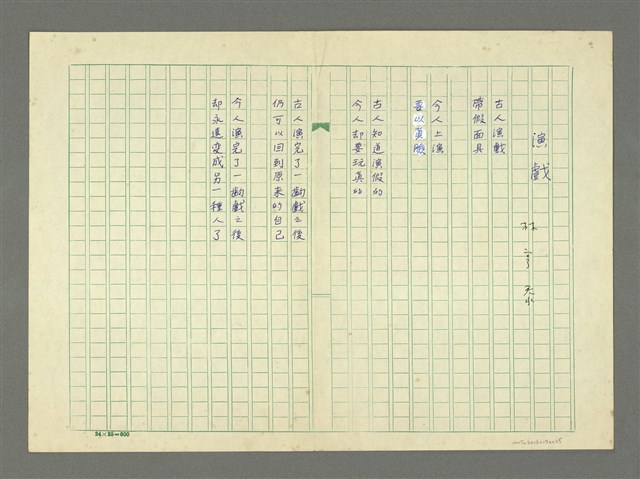 演戲
林亨泰
古人演戲
帶假面具
今人上演
要以真臉
古人知道演假的
今人却要玩真的
古人演完了一齣戲之後
仍可以回到原來的自己
今人演完了一齣戲之後
却永遠變成另一種人了
24×25=600